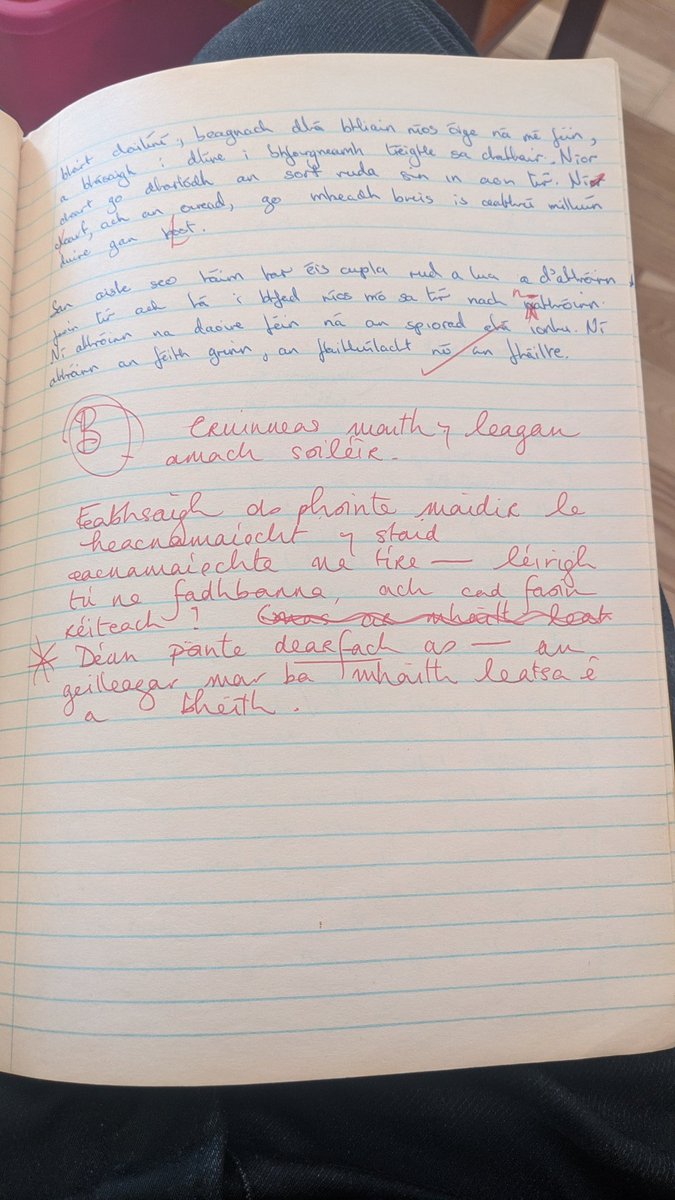 bhí déistiní, beagnach dhá bhliain níos óige ná mé féin,
a básaigh i dtine i bhfoirgneamh tréigthe sa chathair. Níor
cheart go dtarlódh an sort ruda sin in aon tír. Níor
cheart, ach an oiread, go mbeadh breis is ceathrú milliún
duine gan post.
San aiste seo táim tar éis cupla rud a lua a d'athróinn
faoin tír ach tá i bhfad níos mó sa tír nach n-athróinn.
Ní athróinn na daoine féin ná an spiorad atá iontu. Ní
athróinn an féith grinn, an fhlaithiúlacht nó an fháilte.
B
Cruinneas maith ⁊ leagan
amach soiléir.
Feabhsaigh do phointe maidir le
heacnamaíocht ⁊ staid
eacnamaíochta na tíre — léirigh
tú na fadhbanna, ach cad faoin
réiteach?
* Déan pointe dearfach as — an
geilleagar mar ba mhaith leatsa é
a bheith.